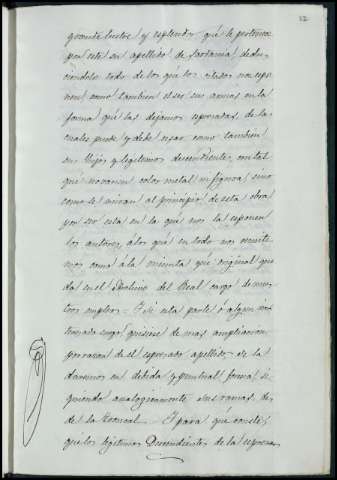 12
grande lustre y esplendor que le pertenece
por este su apellido de Santania, dedu-
ciendolo todo de los que los citados nos espo-
nen; como tambien el ser sus armas en la
forma que las dejamos espresadas, de las
cuales puede y debe usar como tambien
sus hijos y legitimos descendientes, con tal
que no varien color metal ni figura, sino
como se miran al principio de esta obra
por ser esta en la que nos la esponen
los autores, á los que en todo nos remiti-
mos como á la minuta que original que-
da en el Archivo del Real cargo de nues-
tros empleos. = Y si esta parte ó algun in-
teresado suyo quisiese de mas ampliacion
por razon de el espresado apellido se la
daremos en debida y puntual forma, si-
guiendo analogicamente sus ramas, des-
de la troncal. = Y para que conste,
que los legitimos Descendientes de la espresa-